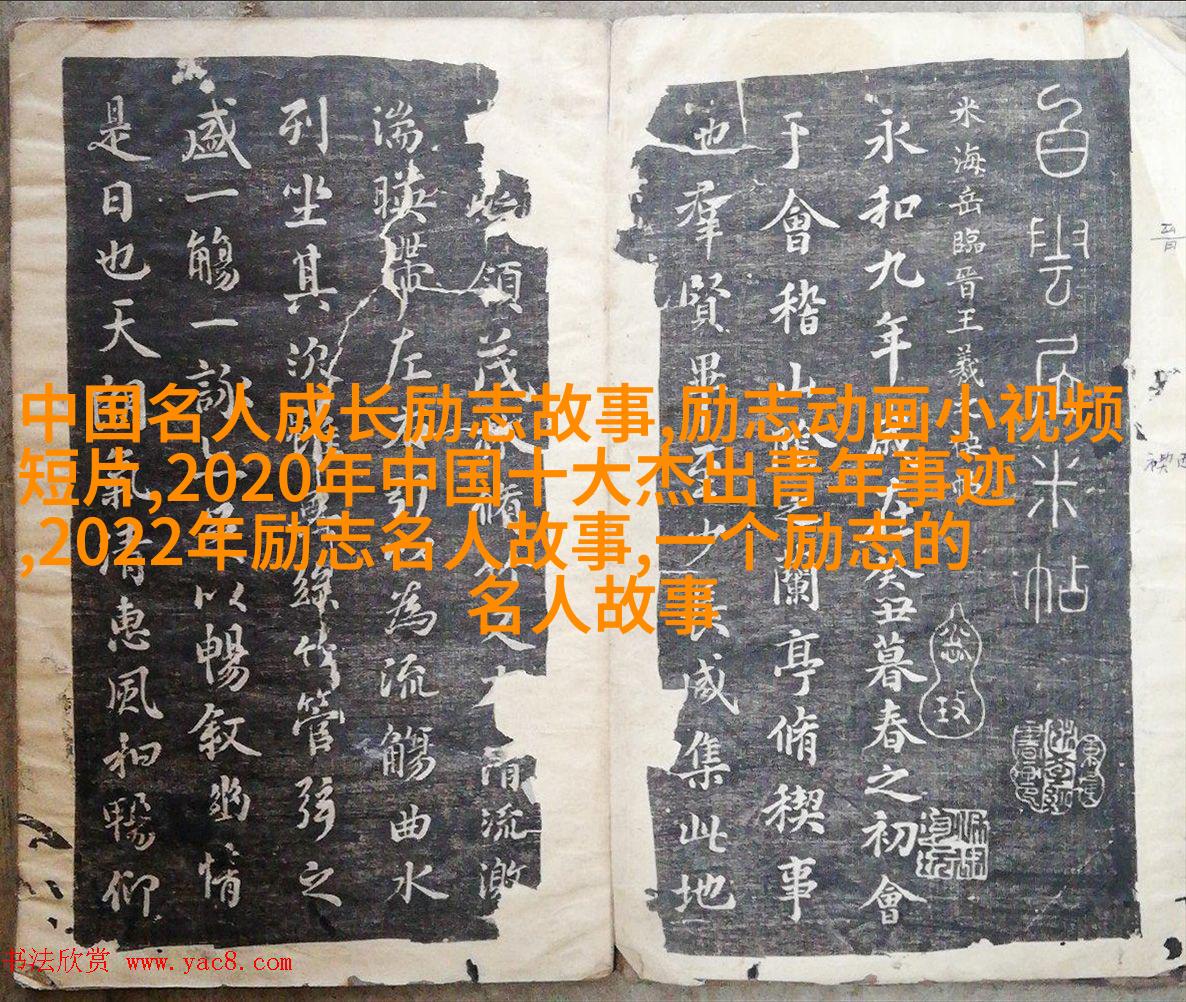 中国名人成长励志故事,励志动画小视频
短片,2020年中国十大杰出青年事迹
,2022年励志名人故事,一个励志的
名人故事
白雲居米帖
米海岳臨晉王羲之禊帖
永和九年歲在癸丑暮春之初會
于會稽山陰之蘭亭脩稧事
也羣賢畢至少長咸集此地
領茂林脩竹又有清流激
湍暎帶左右引以為流觴曲水
列坐其次雖無絲竹管弦之
盛一觴一詠足以暢敘幽情
是日也天朗氣清惠風和暢仰
书法欣赏 www.yac8.com